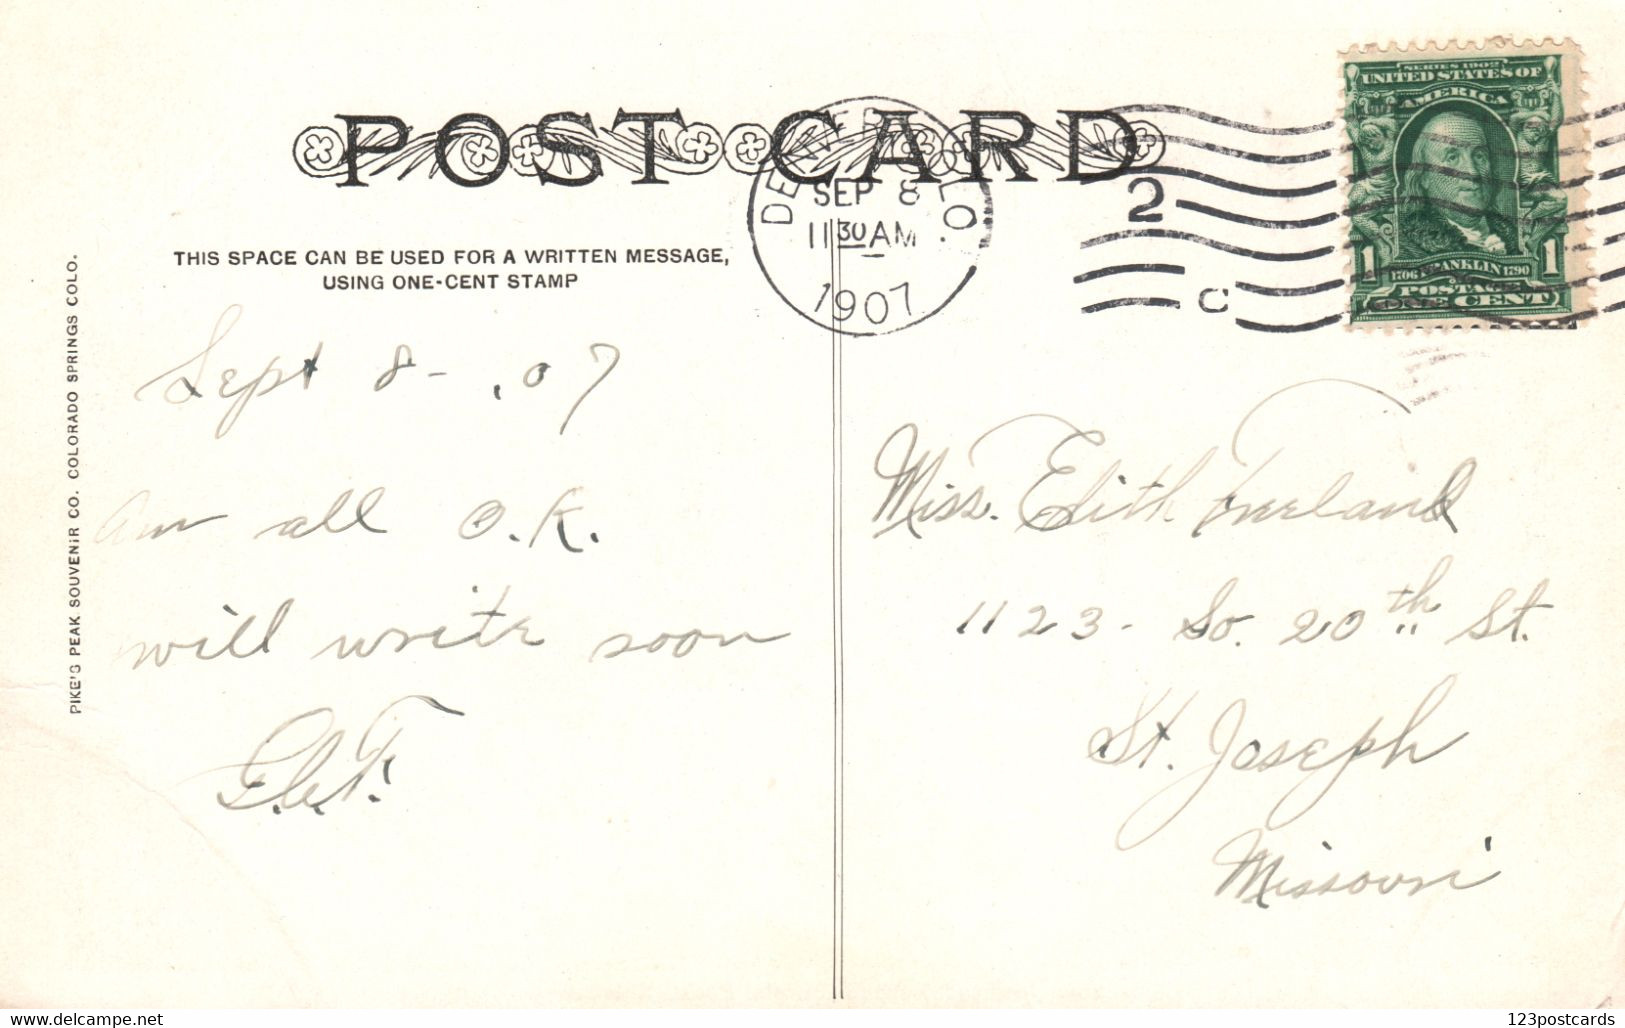 POST CARD
THIS SPACE CAN BE USED FOR A WRITTEN MESSAGE,
USING ONE-CENT STAMP
PIKE'S PEAK SOUVENIR CO. COLORADO SPRINGS COLO.
DENVER COLO.
SEP 8
11 30 AM
1907
2
C
SERIES 1902
UNITED STATES OF
AMERICA
1 1
1706 FRANKLIN 1790
POSTAGE
ONE CENT
Sept 8 - .07
Am all O.K.
will write soon
Miss. Edith Freeland
1123 - So. 20th St.
St. Joseph
Missouri
delcampe.net
123postcards